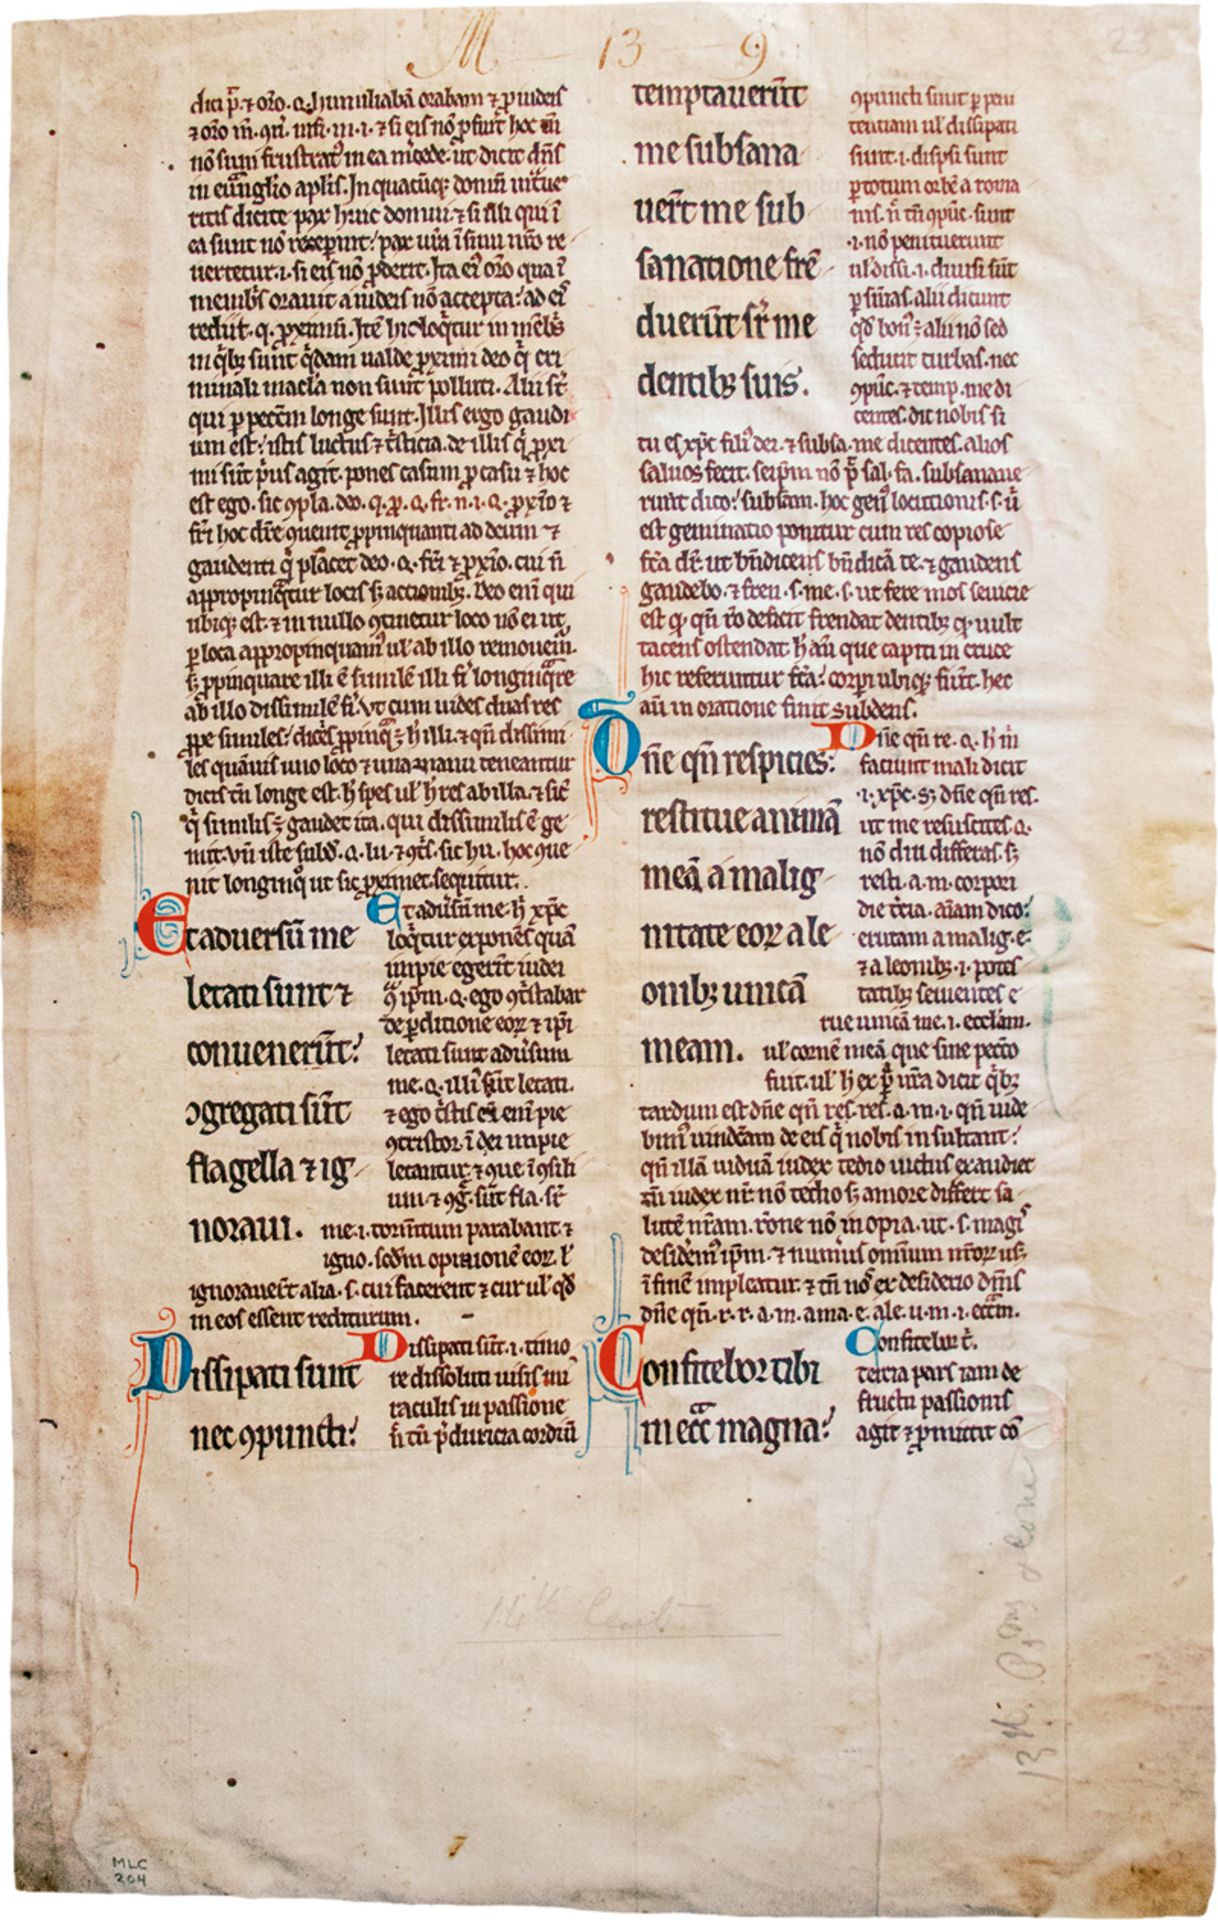 M 13 9
23
dici p̃. ⁊ oro. q. humiliabā orabam ⁊ p iudeis
⁊ oro
nō sum frustrat᷒ in ea m̃cede. ut dicit dñs
in euãnglio aplis. In quacūq; domū
ritis dicite pax huic domui. ⁊ si fili qui ī
ea sunt nō receperint: pax ur̃a ī sinu nr̃o re
uertetur. i. si eis nō pderit. Ita ei᷒ oro qua ꝓ
membris orauit a iudeis nō accepta: ad eū
rediit. q. pximū. Itē hic loq̃tur in mēbs
in q̃b; sunt q̃dam ualde pximi deo q̃ cri
minali macla non sunt polluti. Alii st̃
qui p pecc̃m longe sunt. Illis ergo gaudi
um est: istis luctus ⁊ tsticia. de illis q̃ pxi
mi sūt pus agit. pones casum p casu ⁊ hoc
est ego. sic ꝯpla. deo. q. p. q. fr. n. i. q. pxīo ⁊
fr̃i hoc
gaudenti q̃ placet deo. q. fr̃i ⁊ pxīo. cui ñ
appropinq̃tur locis s; accionib;. Deo eni qui
ubiq; est. ⁊ in nullo ꝯtinetur loco nō ei ut
p loca appropinquam᷒ ul' ab illo remoueam̃.
s; ppinquare illi ē similē illi fi longinq̃re
ab illo dissimilē fi. Vt cum uides duas res
ppe similes: dices ppinq̃ ē h illi. ⁊ qn̄ dissimi
les quāuis uno loco ⁊ una manu teneantur
dicis tn̄ longe est. h spes ul' h res ab illa. ⁊ sic̃
q̃ similis ē gaudet ita. qui dissimilis ē ge
mit. Vn̄ iste subd̃. q. lu. ⁊ ꝯts. sic hu. hoc que
nit longinq᷒ ut sic pximet. sequitur.
Et aduersū me
letati sunt ⁊
conuenerūt:
ꝯgregati sūt
flagella ⁊ ig
noraui.
Et adu̾sū me. h̃ xp̄c
loq̃tur exponēs quā
impie egerīt iudei
q̃ ip̄m. q. ego ꝯtstabar
de pditione eoꝝ ⁊ ip̄i
letati sunt adu̾sum
me. q. illi sūt letati.
⁊ ego tstis eni pie
ꝯtristor. ī dei impie
letantur. ⁊ que ī ꝯsili
um ⁊ ꝯg̃. sūt fla. sr̃
me. i. tormtum parabant ⁊
igno. sc̄dm opinionē eoꝝ. l'
ignorauer̃t alia. s. cui facerent ⁊ cur ul' qd̃
in eos essent rediturum.
Dissipati sunt
nec ꝯpuncti:
Dissipati sūt. i. timo
re dissoluti uisis mi
raculis in passione
ñ tn̄ p̃ duricia cordiū
temptauerūt
me subsana
uer̃t me sub
sanatione frē
duerūt sr̃ me
dentib; suis.
ꝯpuncti sunt p peni
tentiam ul' dissipati
sunt. i. dispsi sunt
p totum orbē a roma
nis. ñ tn̄ ꝯpūc̃. sunt
.i. nō penituerunt
ul' dissi. i. diuisi sūt
p sñias. alii dicunt
qd̃ bon᷒ ē alii nō sed
seducit turbas. nec
ꝯpūc̃. ⁊ temp. me di
centes. dic nobis si
tu es xp̄c fili᷒ dei. ⁊ subsa. me dicentes. alios
saluos fecit. seip̄m nō p̃ sal. fa. subsanaue
runt dico: subsañ. hoc gen᷒ locutionis. s. ū
est geminatio ponitur cum res copiose
fc̄a dr̃. ut bn̄dicens bn̄dicā te. ⁊ gaudens
gaudebo. ⁊ fren. s. me. s. ut fere mos seuicie
est q; qn̄ ro deficit frendat dentib; q; uult
tacens ostendat. h aū que capiti in cruce
hic referuntur fc̄a: corpi ubiq; fiūt. hec
aū in oratione finit subdens.
Dñe qn̄ respicies:
restitue animā
meā a malig
nitate eoꝝ a le
onib; unicā
meam.
Dñe qn̄ re. q. h m̃
faciunt mali dicit
.i. xp̄c. s; dñe qn̄ res.
ut me resuscites q.
nō diu differas. s;
resti. a. m. corpori
die tc̃ia. aīam dico:
erutam a malig. e.
⁊ a leonib;. i. potes
tatib; seuientes e
rue unicā me. i. eccl'am.
ul' carnē meā que sine pecc̃o
fuit. ul' h ex p̃ nr̃a dicit q̃b;
tardum est dñe qn̄ res. res. a. m. i. qn̄ uide
bim᷒ uindc̃am de eis q̃ nobis insultant:
qn̄ illā uiduā iudex tedio uictus exaudiet
tn̄ iudex nr̃ nō tedio s; amore differt sa
lutē nr̃am. rōne nō inopia. ut. s. magis
desidem᷒ ip̄m. ⁊ num̃us omnium nr̃oꝝ us;
ī finē impleatur. ⁊ tn̄ nos ex desiderio dm̃s
dñe qn̄. r. r. a. m. a ma. e. a le. u. m. i. ecc̄am.
Confitebor tibi
in ecc̃ magna:
Confitebor t̃.
tercia pars iam de
fructu passionis
agit ⁊ pmittit cō
14th Cent
MLC
204